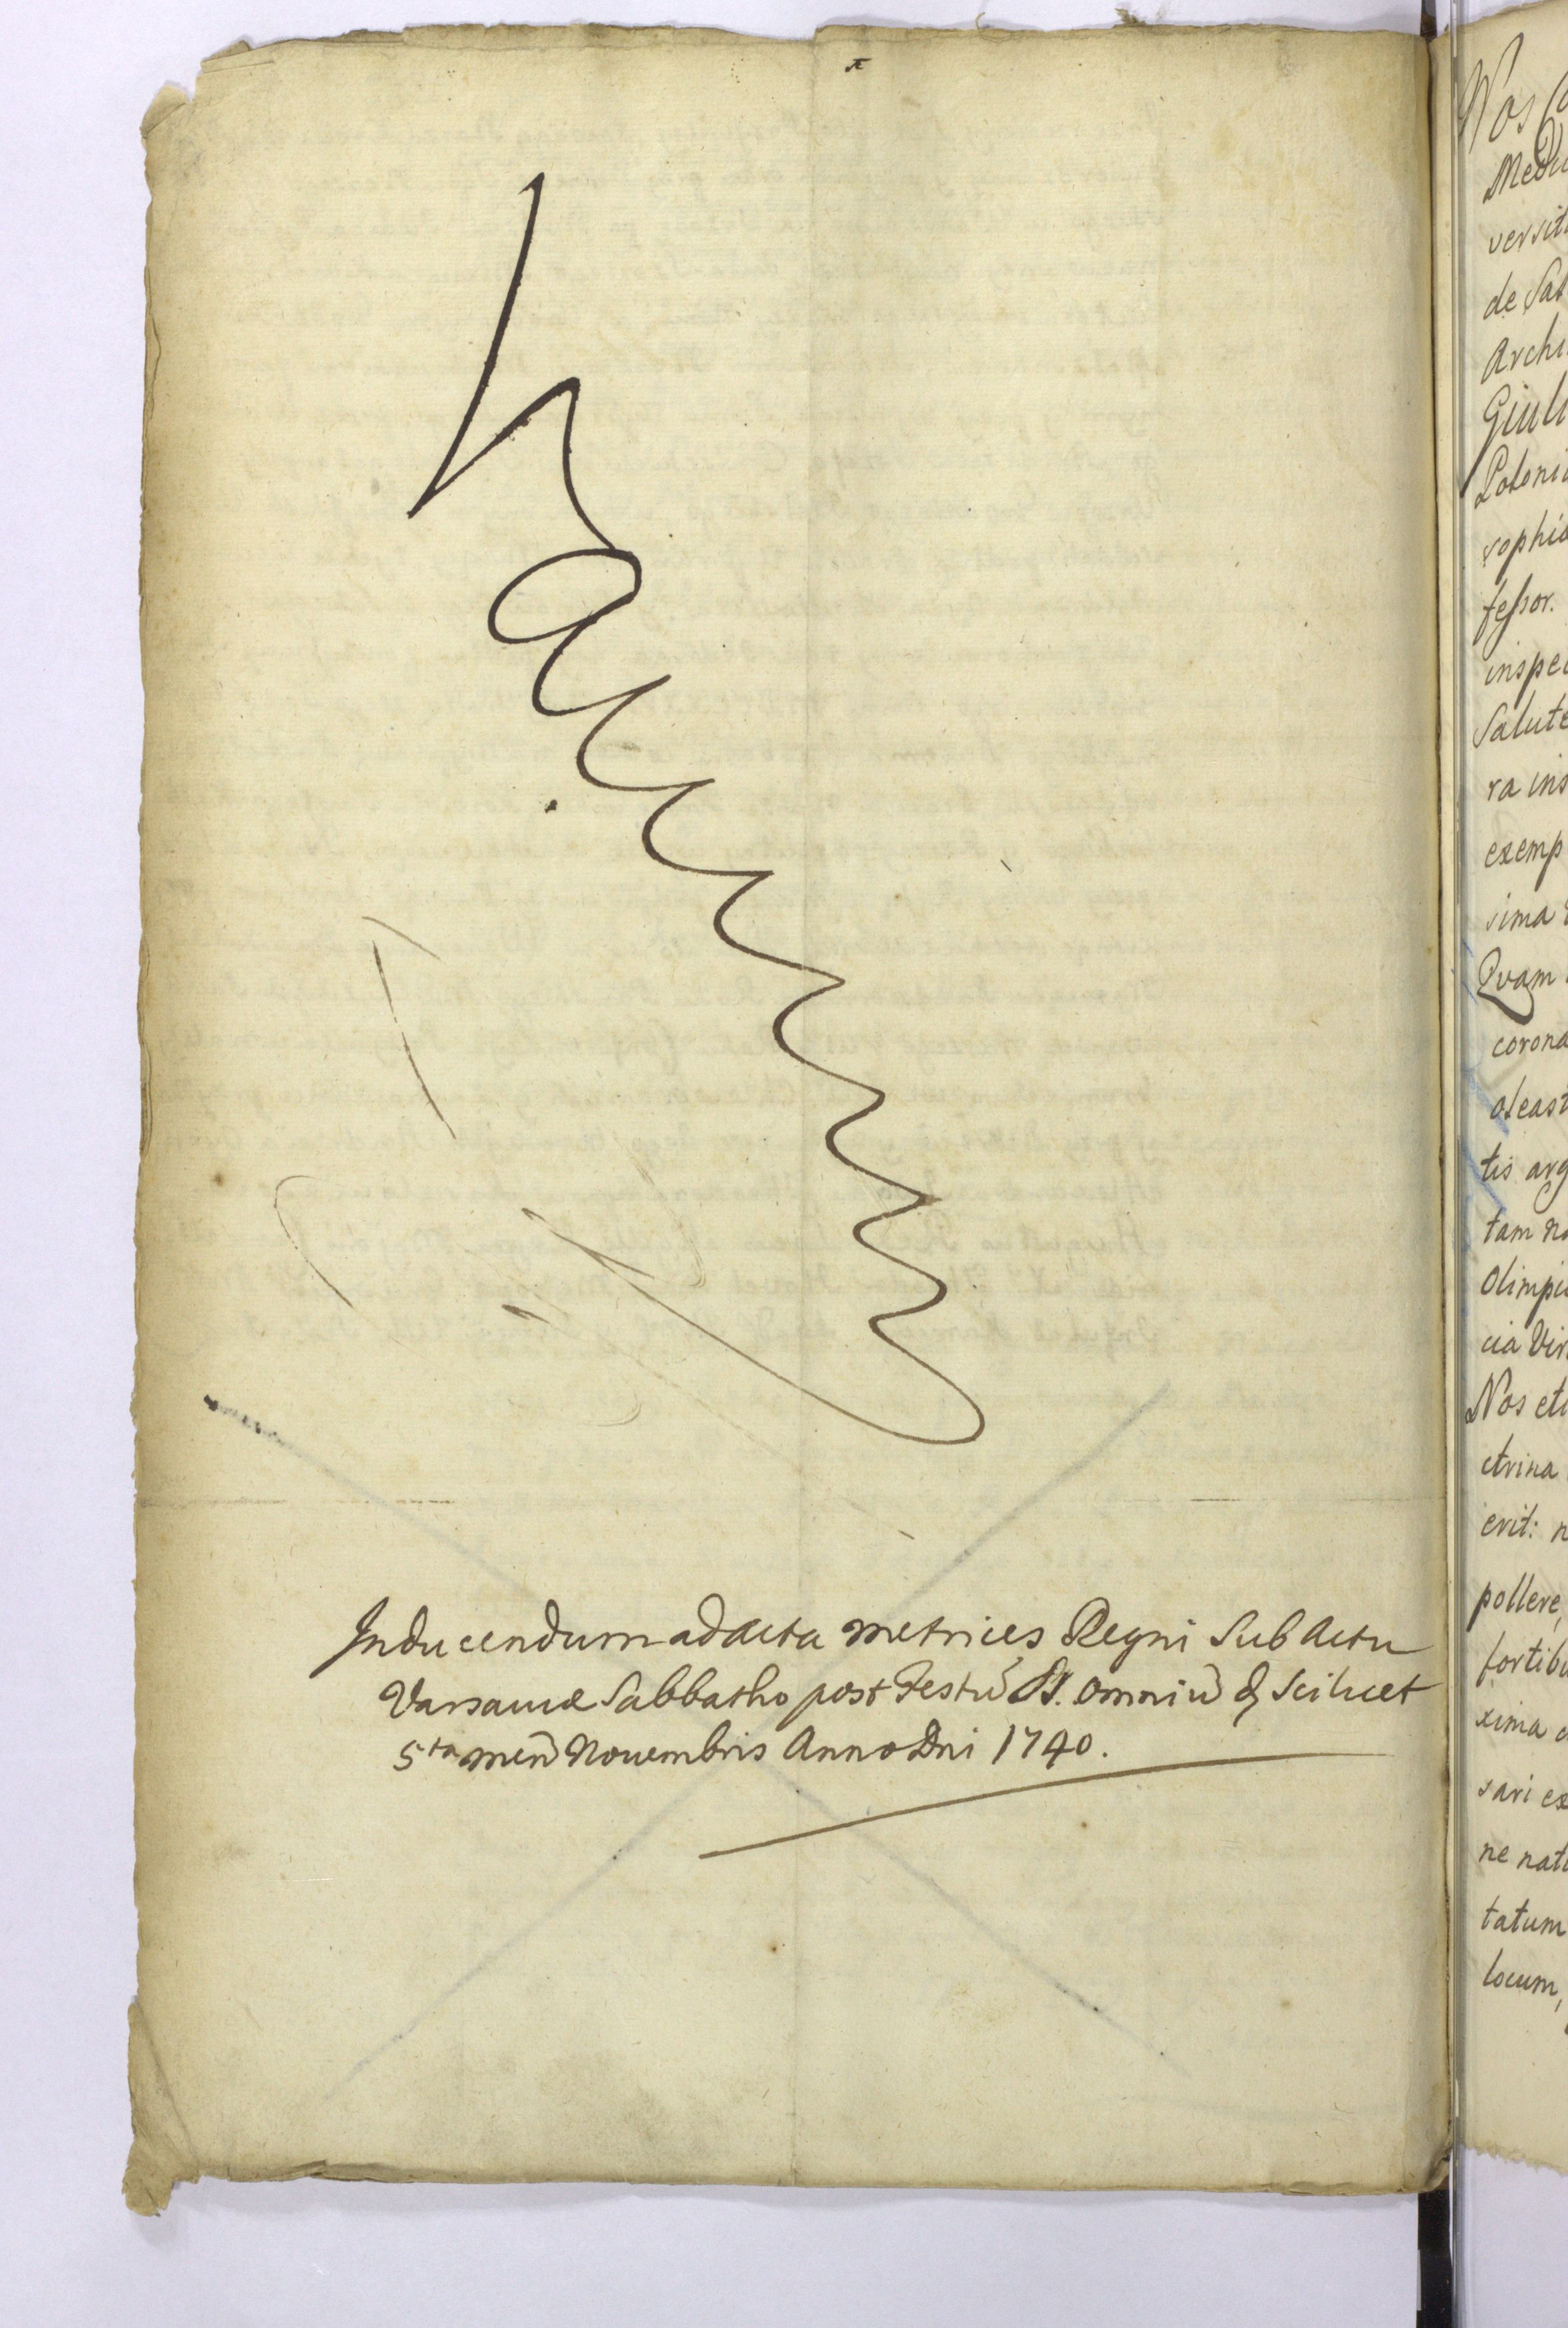 Inducendum ad acta metrices Regni Sub Actu
Varsaviæ Sabbatho post Festū SS. omniū scilicet
5ta men Novembris Anno Dni 1740.
Nos
versit
de
Archi
Giuli
Poloni
sophia
fessor.
inspec
Salute
ra ins
exemp
sima
Qvam
corona
oleast
tis arg
tam no
Olimpi
cia Vir
Nos eti
ctrina
erit: n
pollere,
fortibu
xima
sari ex
ne natu
tatum
locum,